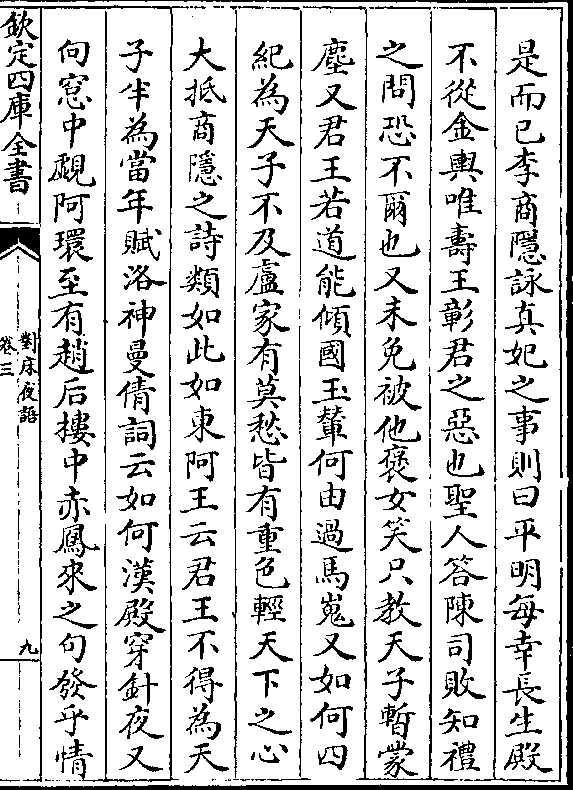 是而已李商隱詠真妃之事則曰平明每幸長生殿
不從金輿唯壽王彰君之惡也聖人答陳司敗知禮
之問恐不爾也又未免被他褒女笑只教天子暫蒙
塵又君王若道能傾國玉輦何由過馬嵬又如何四
紀為天子不及盧家有莫愁皆有重色輕天下之心
大抵商隱之詩類如此如東阿王云君王不得為天
子半為當年賦洛神曼倩詞云如何漢殿穿針夜又
向窓中覷阿環至有趙后樓中赤鳳來之句發乎情
欽定四庫全書
對牀夜語
卷三
九